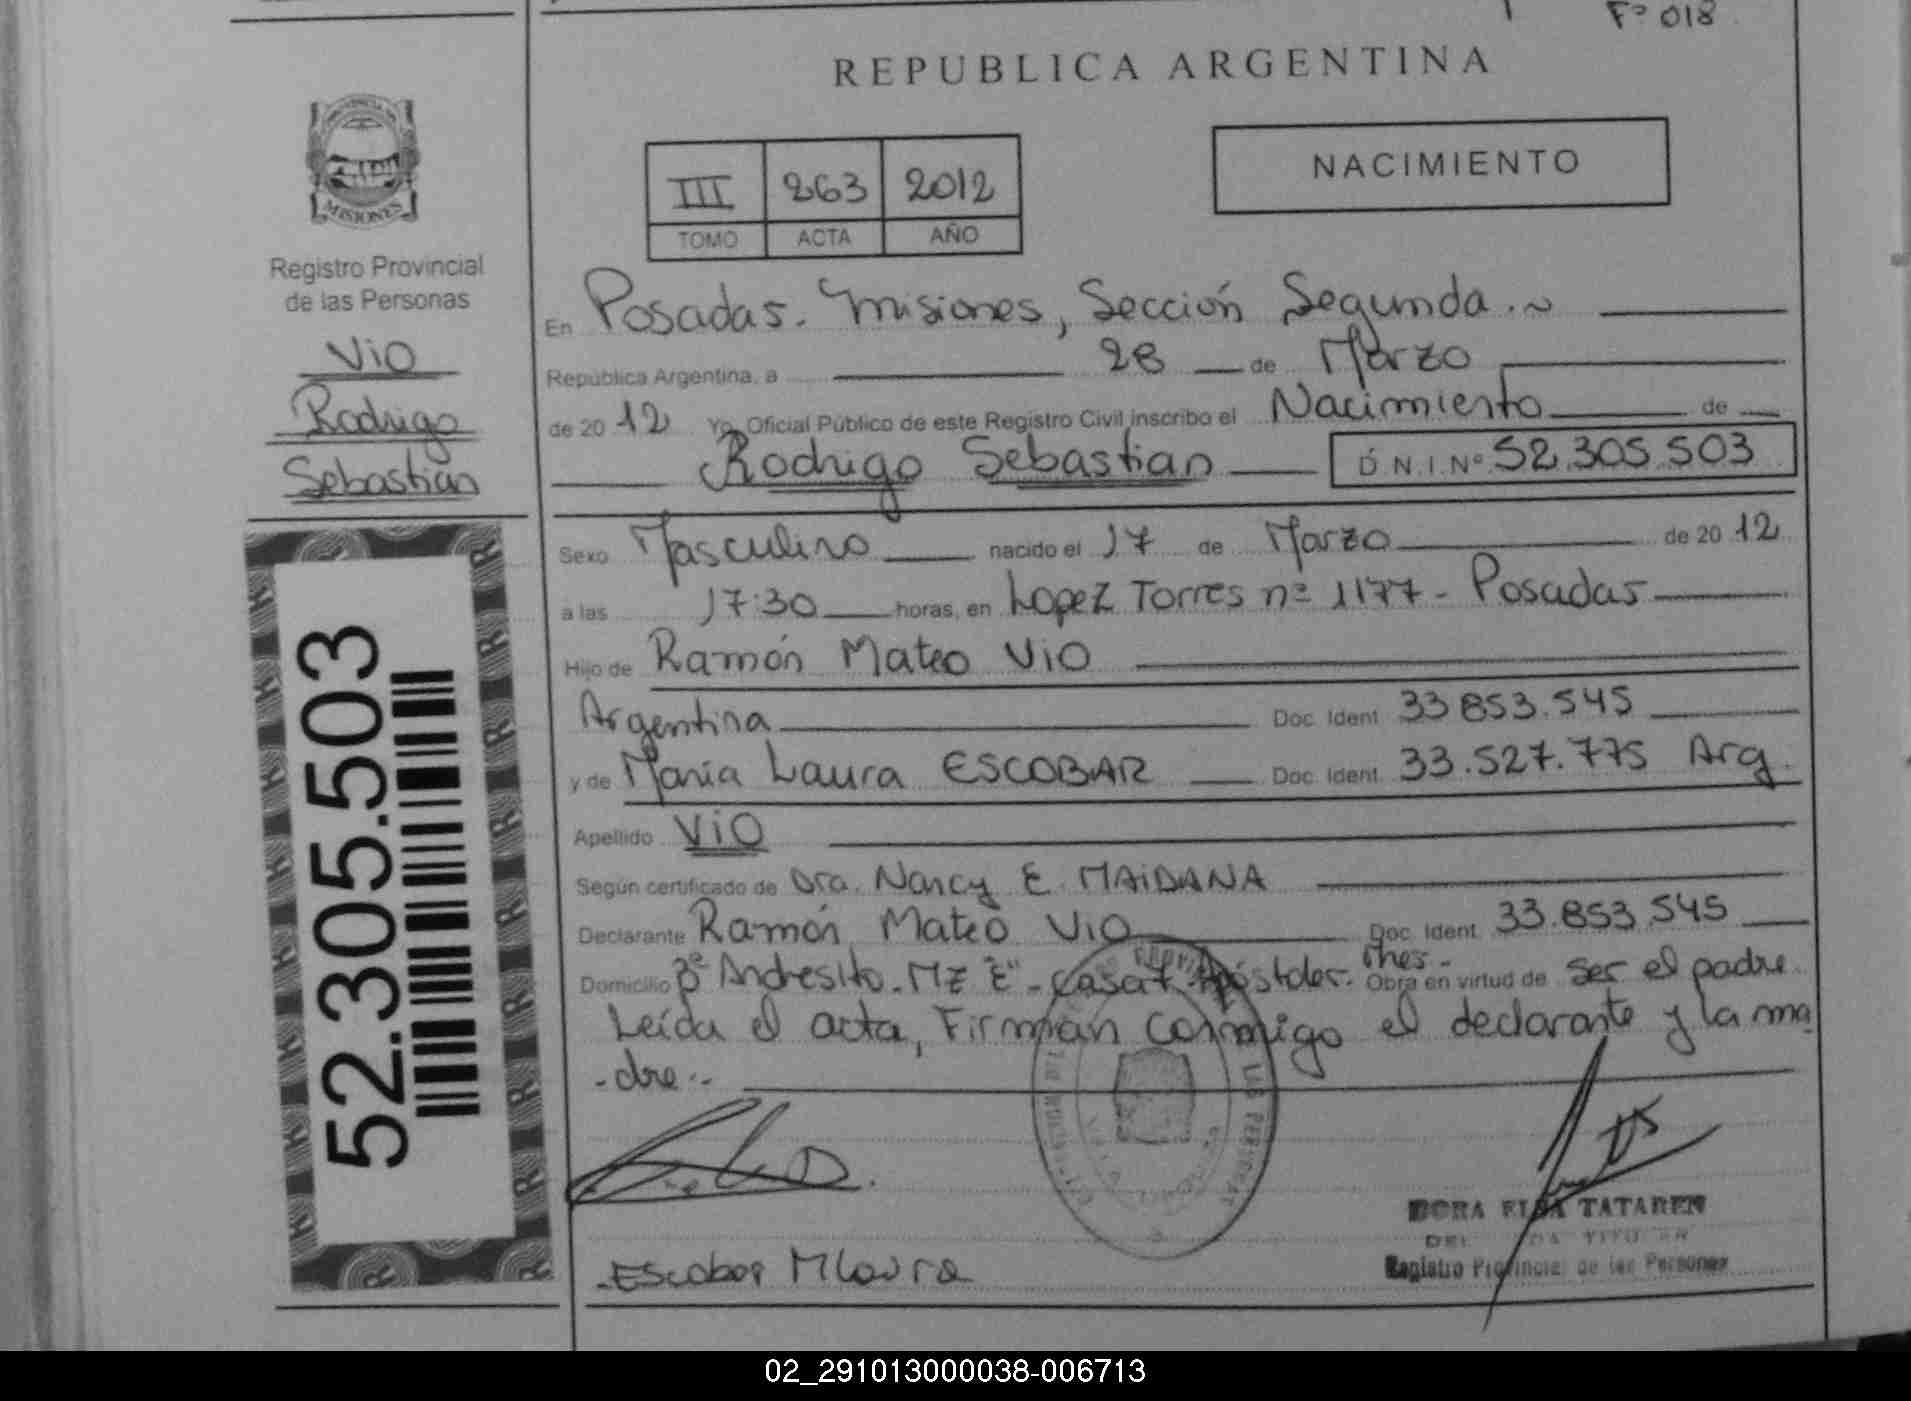 Fº 018
REPUBLICA ARGENTINA
MISIONES
Registro Provincial
de las Personas
ViO
Rodrigo
Sebastián
52.305.503
III 263 2012
TOMO ACTA AÑO
NACIMIENTO
En Posadas. Misiones, Sección Segunda.~
República Argentina, a 28 de Marzo
de 2012 Yo, Oficial Público de este Registro Civil inscribo el Nacimiento de
Rodrigo Sebastián D.N.I.Nº 52.305.503
Sexo Masculino nacido el 17 de Marzo de 2012
a las 17:30 horas, en Lopez Torres nº 1177- Posadas
Hijo de Ramón Mateo ViO
Argentina Doc. Ident. 33 853.545
y de María Laura ESCOBAR Doc. Ident. 33.527.775 Arg.
Apellido ViO
Según certificado de Dra. Nancy E. MAiDANA
Declarante Ramón Mateo ViO Doc. Ident. 33.853.545
Domicilio Bº Andresito - MZ "E" - casa 7 - Apóstoles. Mnes. - Obra en virtud de ser el padre.
Leída el acta, Firman conmigo el declarante y la ma
-dre.-
Escobar M Laura
DORA ELSA TATAREN
Registro Provincial de las Personas
02_291013000038-006713